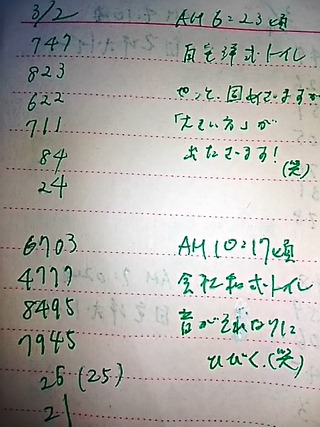 3/2 AM 6:23頃
747 自宅洋式トイレ
823
622
711 「大きい方」が
84 出たでます!
24 (笑)
6703 AM 10:17頃
4777 会社和式トイレ
8495 音がそれなりに
7945 ひびく.(笑)
26 (25)
21